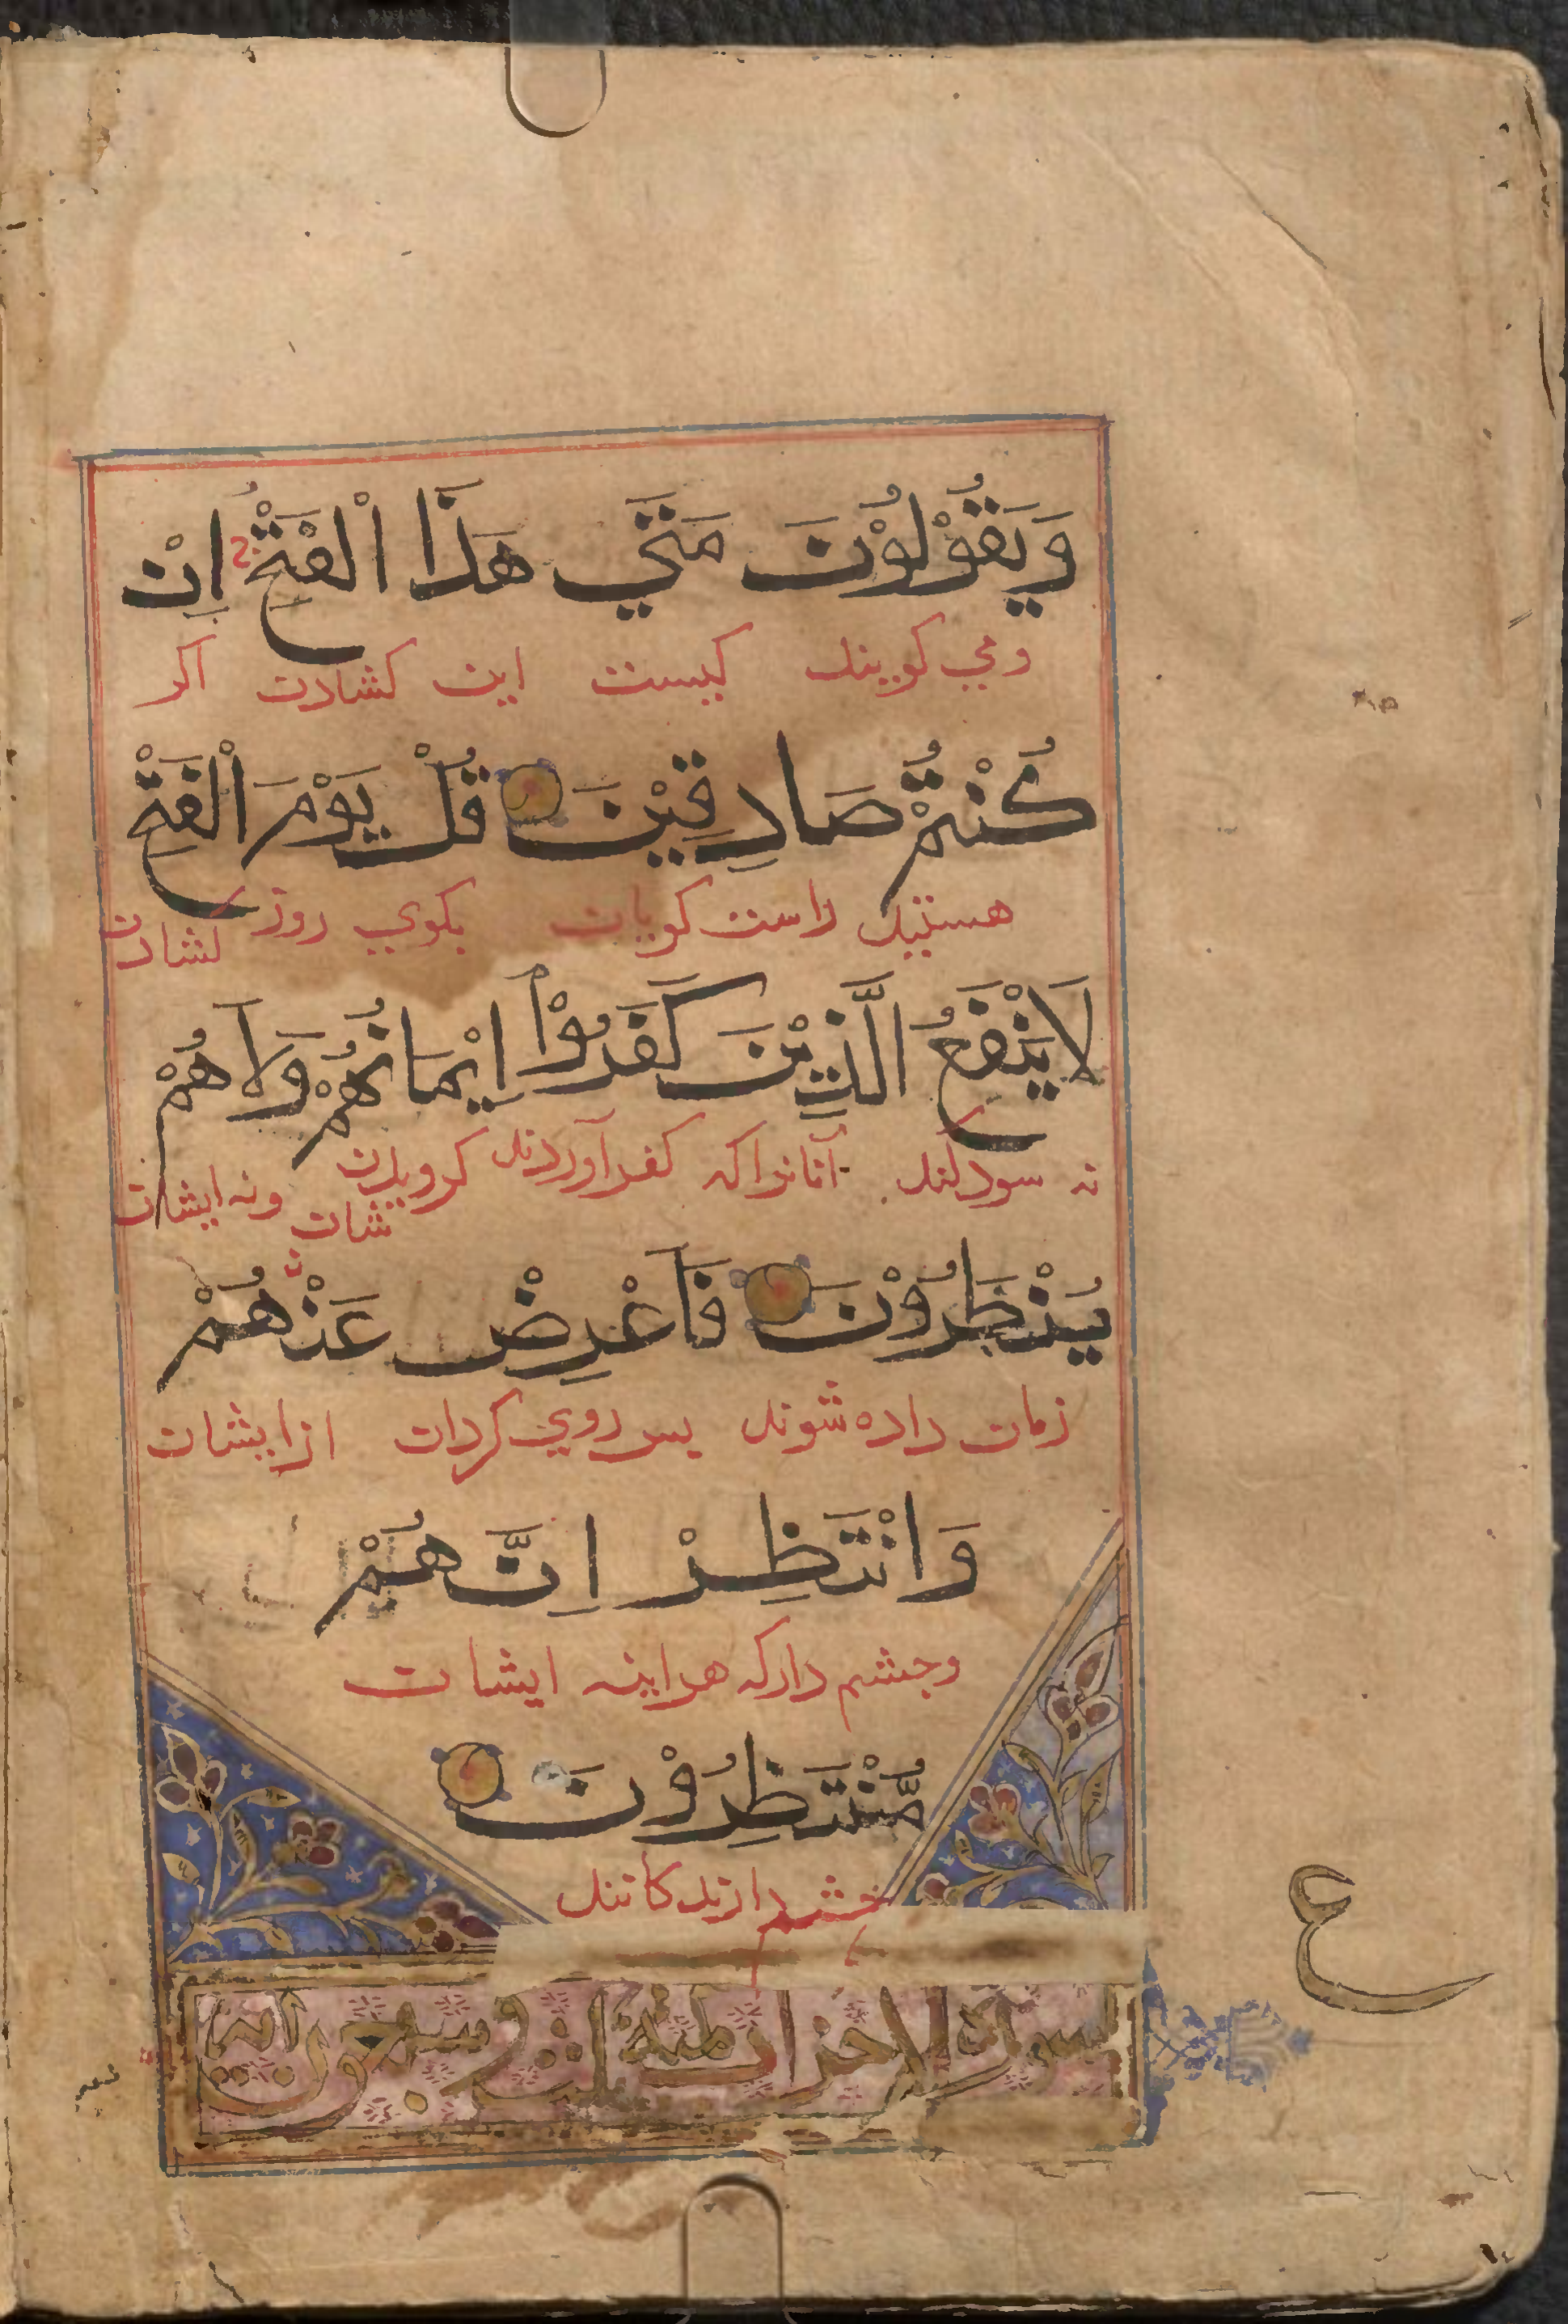 وَيَقُوْلُوْنَ مَتَي هَذَا اْلفَتْحُ اِنْ
ومي كويند كيست اين كشادن اكر
كُنْتُمْ صَادِقِيْنَ قُلْ يَوْمَ اْلفَتْحِ
هستيد راست كويان بكوي روز كشادن
لَا يَنْفَعُ الَّذِيْنَ كَفَرُوْا اِيْمَانُهُمْ وَلَا هُمْ
نه سود كند آنانراكه كفر آوردند كرويدن شان ونه ايشان
يُنْظَرُوْنَ فَاَعْرِضْ عَنْهُمْ
زمان داده شوند بس روي كردان ازايشان
وَانْتَظِرْ اِنَّهُمْ
وجشم داركه هراينه ايشان
مُّنْتَظِرُوْنَ
جشم دارندكانند
سورة الاحزاب مدنية ثلث وسبعون آية
ع